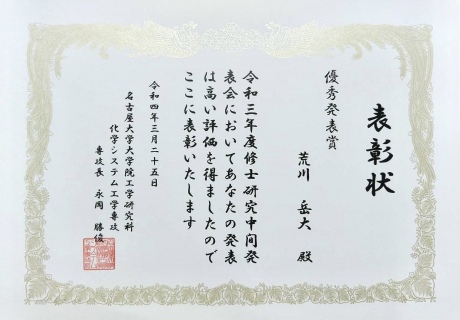 表彰状
優秀発表賞
荒川 岳大 殿
令和三年度修士研究中間発
表会においてあなたの発表
は高い評価を得ましたので
ここに表彰いたします
令和四年三月二十五日
名古屋大学大学院工学研究科
化学システム工学専攻
専攻長 永岡 勝俊